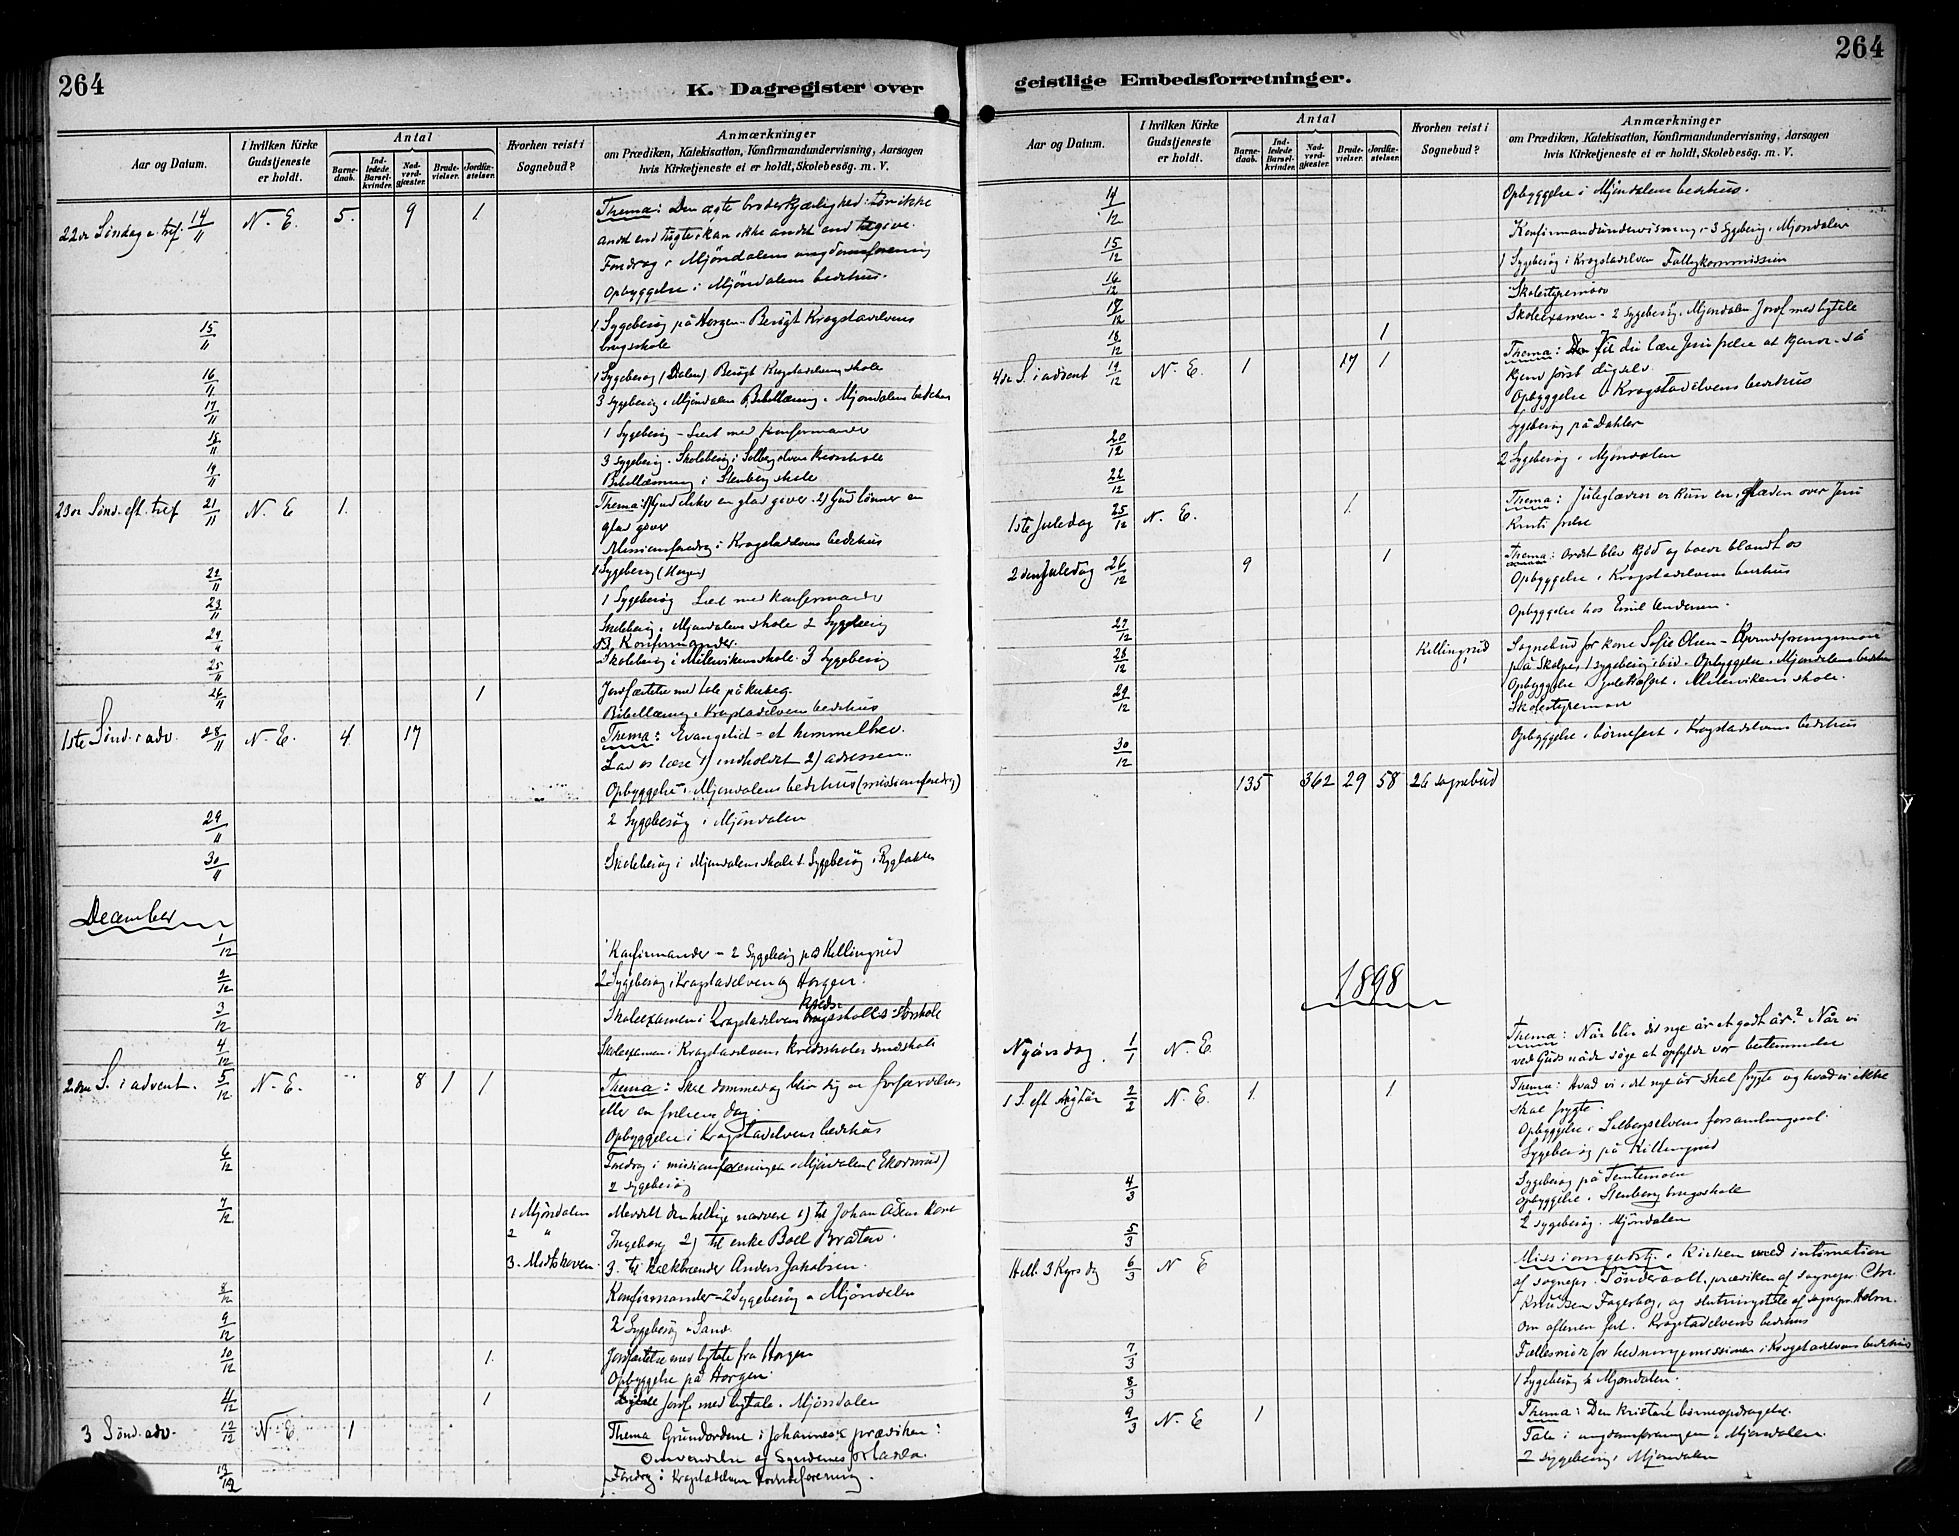 264
K. Dagregister over
Aar og Datum.
I hvilken Kirke Gudstjeneste er holdt.
Antal
Barnedaab.
Indledede Barselkvinder.
Nadverdgjæster.
Brudevielser.
Jordfæstelser.
Hvorhen reist i Sognebud?
Anmærkninger
om Prædiken, Katekisation, Konfirmandundervisning, Aarsagen
hvis Kirketjeneste ei er holdt, Skolebesøg. m. V.
22de Søndag e. tref. 14/11 N. E. 5. 9 1 Thema: Den ægte broderkjærlighed: Tør ikke
andet end tugte, kan ikke andet end tilgive.
Foredrag i Mjøndalens ungdomsforening
Opbyggelse i Mjøndalens bedehus.
15/11 1 Sygebesøg på Horgen. Besøgt Krogstadelvens
brugsskole
16/11 1 Sygebesøg (Dalen) Besøgt Krogstadelvens skole
17/11 3 Sygebesøg i Mjøndalen Bibellæsning i Mjøndalens bedehus
18/11 1 Sygebesøg - Læst med Konfirmander
19/11 3 Sygebesøg. Skolebesøg i Solbergelvens kredsskole
Bibellæsning i Stenberg skole
23de Sønd. eft. tref 21/11 N. E 1. Thema: 1) Gud elsker en glad giver. 2) Gud lønner en
glad giver
Missionsforedrag i Krogstadelvens bedehus
22/11 1 Sygebesøg (Horgen)
23/11 1 Sygebesøg Læst med Konfirmander
24/11 Skolebesøg i Mjøndalens skole 2 Sygebesøg
Konfirmander.
25/11 Skolebesøg i Milevikens skole. 3 Sygebesøg
26/11 1 Jordfæstelse med tale på
Bibellæsning i Krogstadelvens bedehus
1ste Sønd. i adv. 28/11 N. E. 4 17 Thema: Evangeliet - et himmelbrev.
Lad os læse 1) indholdet 2) adressen.
Opbyggelse i Mjøndalens bedehus (missionsforedrag)
29/11 2 Sygebesøg i Mjøndalen
30/11 Skolebesøg i Mjøndalens skole 1 Sygebesøg i Rygbakken
December
1/12 Konfirmander - 2 Sygebesøg på Killingrud
2/12 2 Sygebesøg i Krogstadelven og Horgen.
3/12 Skoleexamen i Krogstadelvens kredsskoles storskole
4/12 Skoleexamen i Krogstadelvens kredsskoles småskole
2den S. i advent. 5/12 N. E. 8 1 1 Thema: Skal dommedag blive dig en forfærdelses
eller en frelsens dag.
Opbyggelse i Krogstadelvens bedehus
6/12 Foredrag i missionsforeningen i Mjøndalen (Ekornrud)
2 sygebesøg
7/12 1 Mjøndalen Meddelt den hellige nadvere 1) til Johan Åsens kone
2 " Ingeborg 2) til enke Boel Bråten.
3. Midtskoven 3. til kalkbrænder Anders Jakobsen.
8/12 Konfirmander - 2 Sygebesøg i Mjøndalen
9/12 2 Sygebesøg i Sand.
10/12 1. Jordfæstelse med ligtale fra Horgen
Opbyggelse på Horgen.
11/12 1 Jordf. med ligtale i Mjøndalen
3 Sønd. adv. 12/12 N. E. 1 Thema Grundordene i Johannes's prædiken:
Omvendelse og Syndernes forladelse.
13/12 Foredrag i Krogstadelvens Kvindeforening.
264
geistlige Embedsforretninger.
Aar og Datum.
I hvilken Kirke Gudstjeneste er holdt.
Antal
Barnedaab.
Indledede Barselkvinder.
Nadverdgjæster.
Brudevielser.
Jordfæstelser.
Hvorhen reist i Sognebud?
Anmærkninger
om Prædiken, Katekisation, Konfirmandundervisning, Aarsagen
hvis Kirketjeneste ei er holdt, Skolebesøg. m. V.
14/12 Opbyggelse i Mjøndalens bedehus.
15/12 Konfirmandundervisning - 3 Sygebesøg i Mjøndalen
1 Sygebesøg i Krogstadelven Fattigkommission
16/12 Skolestyremøde
17/12 Skoleexamen - 2 Sygebesøg i Mjøndalen Jordf. med ligtale
18/12 1
4de S. i advent 19/12 N. E. 1 17 1 Thema: Vil du lære Jesu frelse at kjende - så
kjend først dig selv.
Opbyggelse i Krogstadelvens bedehus
20/12 Sygebesøg på Dahler
22/12 2 Sygebesøg i Mjøndalen
1ste Juledag 25/12 N. E. 1. Thema: Juleglæden er kun en, glæden over Jesu
Kristi frelse
2den Juledag 26/12 9 1 Thema: Ordet blev kjød og boede blandt os
Opbyggelse i Krogstadelvens bedehus
27/12 Opbyggelse hos Emil Andersen.
28/12 Killingrud Sognebud for kone Sofie Olsen - Kvindeforeningsmøde
på Skalpe, 1 sygebesøg ibid. Opbyggelse i Mjøndalens bedehus
29/12 Opbyggelse i juletræfest i Milevikens skole.
Skolestyremøde
30/12 Opbyggelse i børnefest i Krogstadelvens bedehus
135 362 29 58 26 sognebud
1898
Nyårsdag. 1/1 N. E. Thema: Når blir det nye år et godt år? Når vi
ved Guds nåde søge at opfylde vor bestemmelse
1 S. eft Nytår 2/2 N. E. 1. 1 Thema: Hvad vi i det nye år skal frygte og hvad vi ikke
skal frygte.
Opbyggelse i Solbergelvens forsamlingssal.
Sygebesøg på Killingrud
4/3 Sygebesøg på Temtemoen
Opbyggelse i Stenberg brugsskole
5/3 2 sygebesøg. Mjøndalen
Hell. 3 Kgrs dg 6/3 N E Missionsgudstj. i Kirken med intimation
af sognepr. Sønderaal, prædiken af sognepr. Chr.
Knudsen Fagerborg, og slutningstale af sognepr. Holm.
Om aftenen fest i Krogstadelvens bedehus
7/3 Fællesmøde for hedningemissionen i Krogstadelvens bedehus
8/3 1 Sygebesøg i Mjøndalen.
9/3 N. E 1 Thema: Den kristne børneopdragelse.
Tale i ungdomsforeningen i Mjøndalen.
2 sygebesøg i Mjøndalen